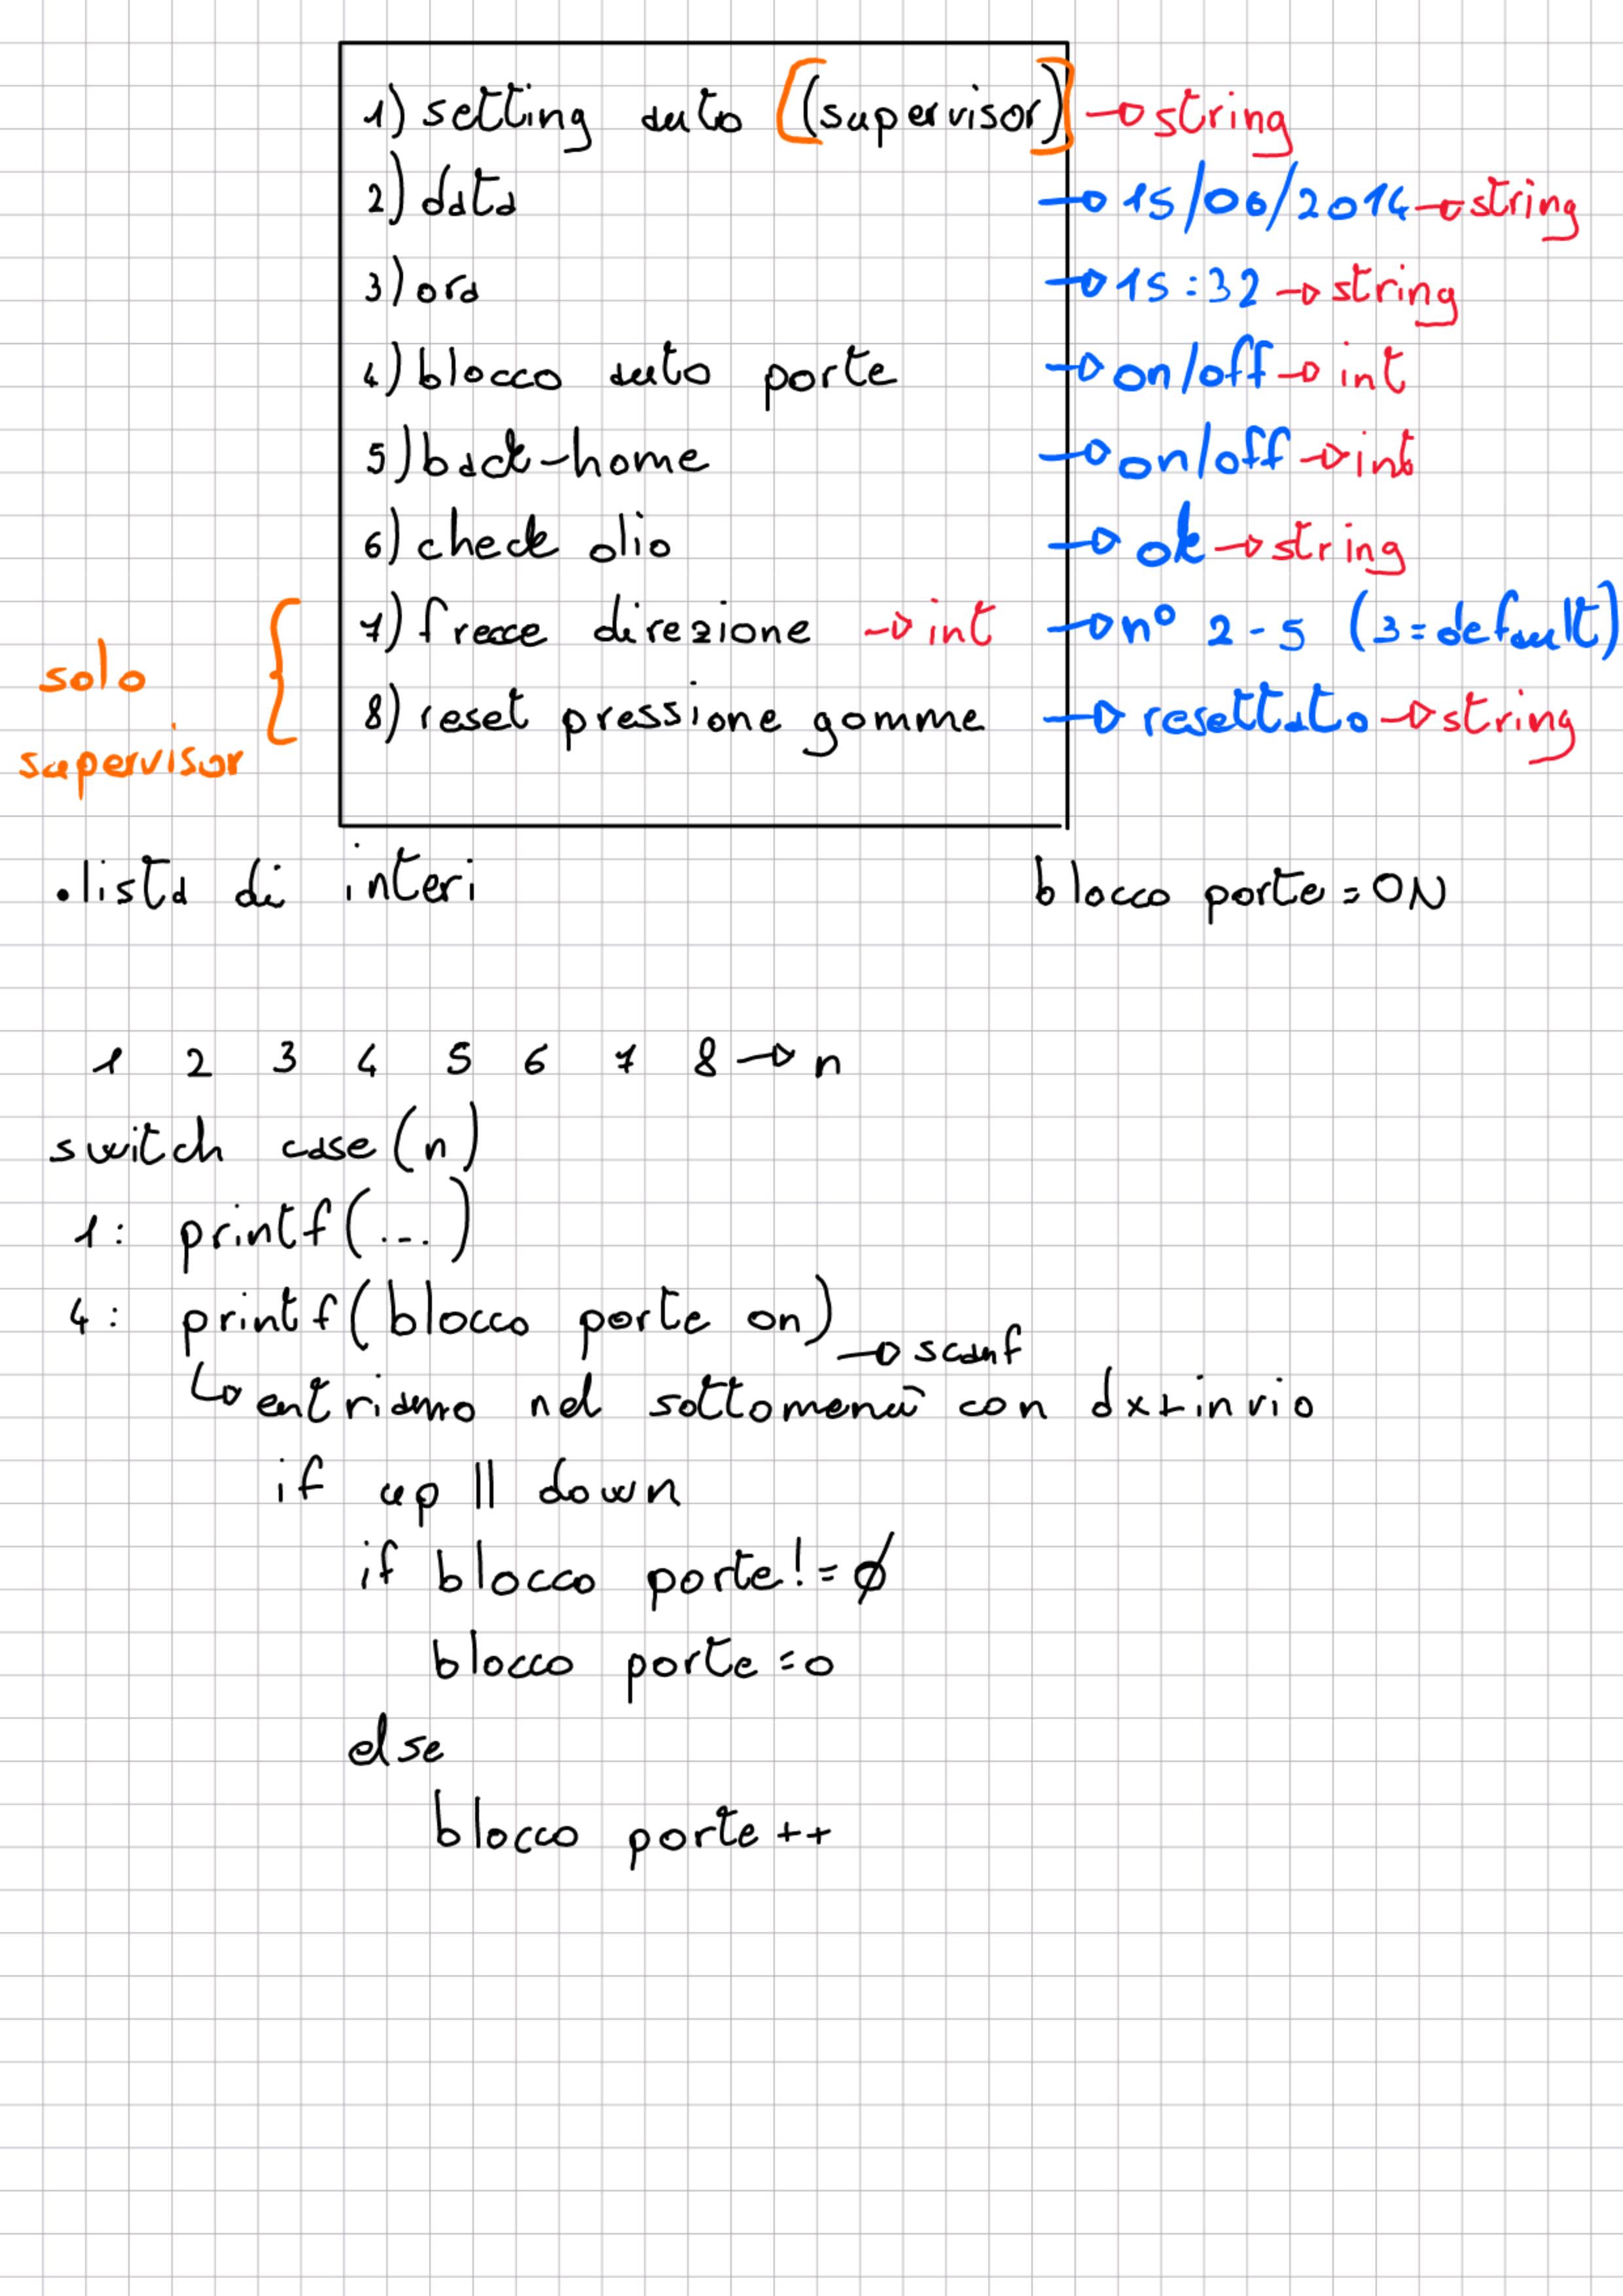 1) setting auto [(supervisor)] → string
2) data → 15/06/2014 → string
3) ora → 15:32 → string
4) blocco auto porte → on/off → int
5) back-home → on/off → int
6) check olio → ok → string
7) frecce direzione → int → n° 2-5 (3=default)
8) reset pressione gomme → resettato → string
solo
supervisor
.lista di interi
blocco porte = ON
1 2 3 4 5 6 7 8 → n
switch case (n)
1: printf(...)
4: printf(blocco porte on) → scanf
↳ entriamo nel sottomenù con dx+invio
if up || down
if blocco porte != ∅
blocco porte = 0
else
blocco porte ++